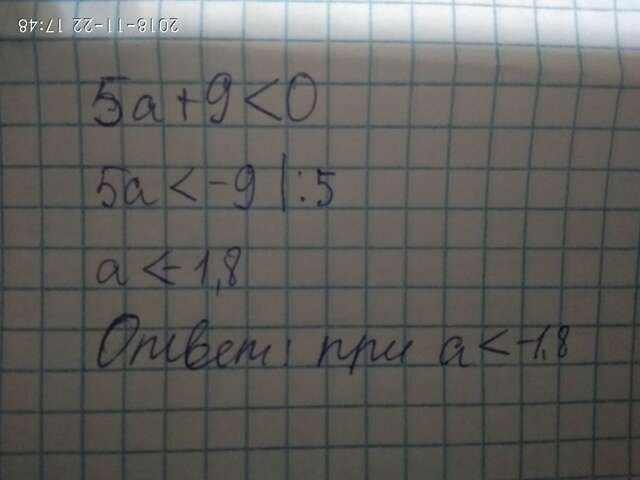 2018-11-22 17:48
5a+9<0
5a<-9 |:5
a<-1,8
Ответ: при a<-1,8